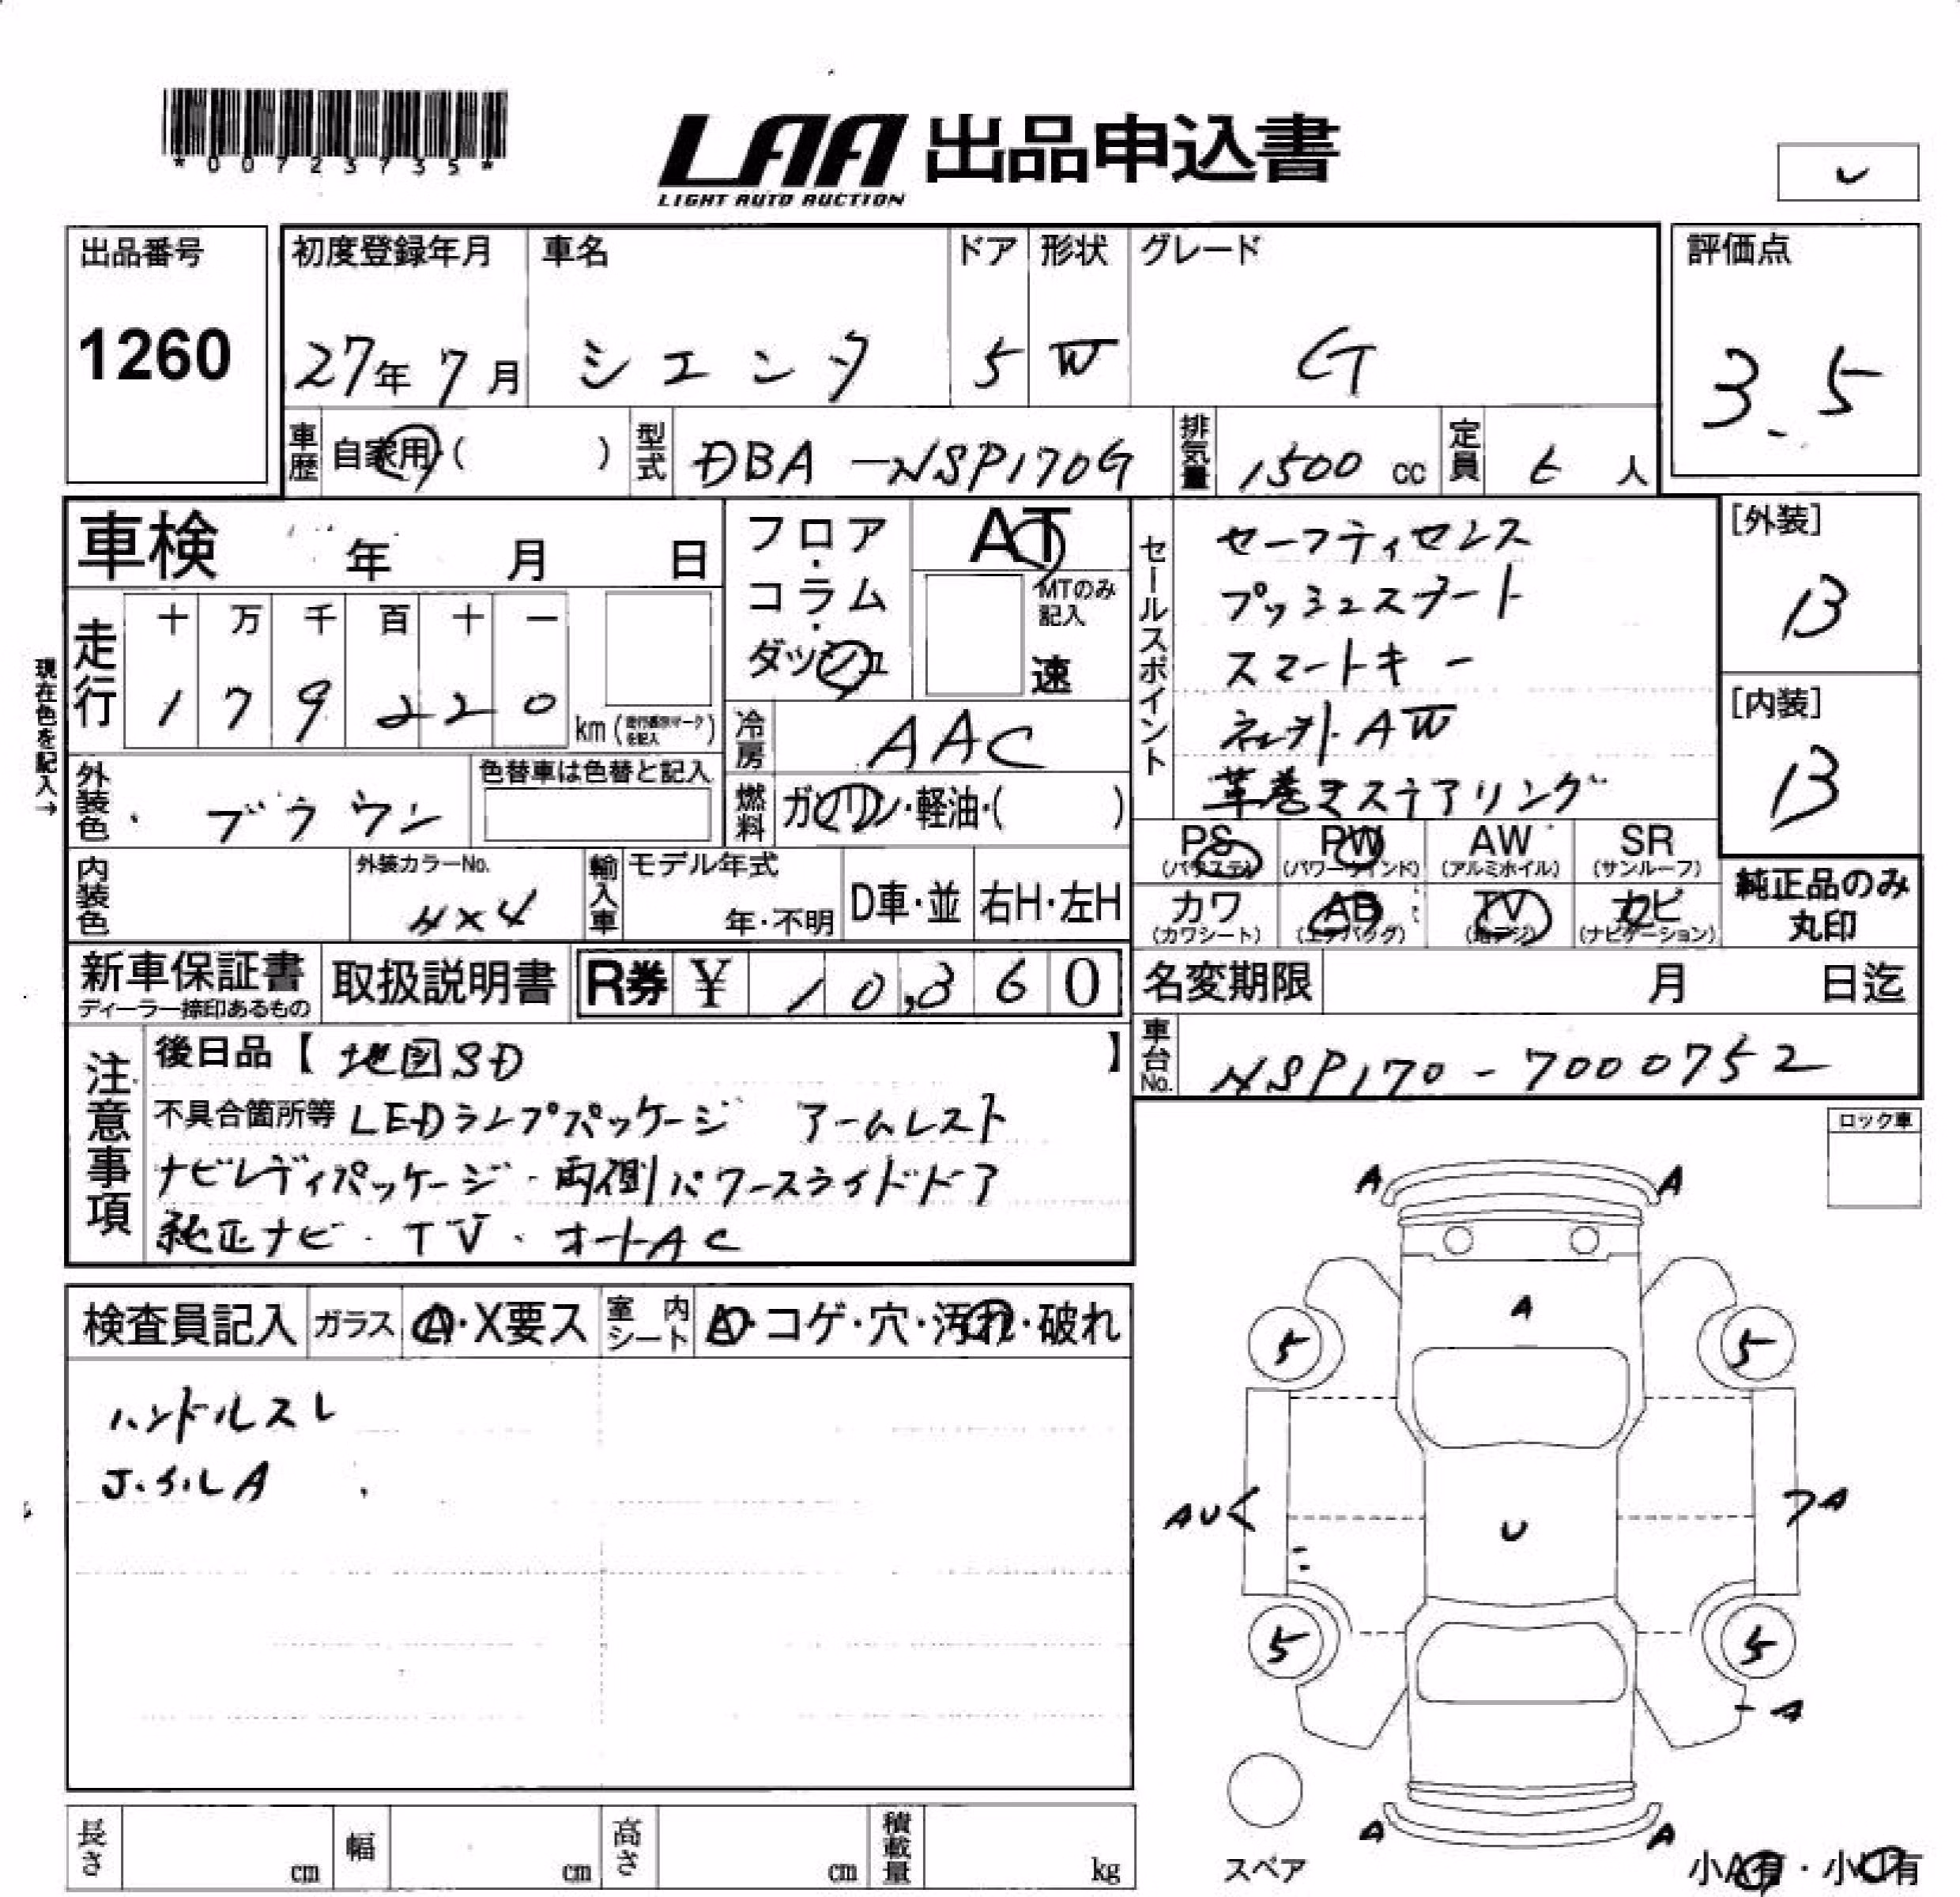 *00723735*
LAA 出品申込書
LIGHT AUTO AUCTION
出品番号
1260
初度登録年月
27年 7月
車名
シエンタ
ドア
5
形状
W
グレード
G
評価点
3.5
車歴 自家用・( )
型式 DBA-NSP170G
排気量 1500 cc
定員 6 人
車検 年 月 日
フロア・コラム・ダッシュ
AT
MTのみ記入
速
現在色を記入→
走行
十 万 千 百 十 一
1 7 9 2 2 0
km (走行距離マークを記入)
冷房 AAC
外装色 ブラウン
色替車は色替と記入
燃料 ガソリン・軽油・( )
内装色
外装カラーNo.
4×4
輸入車
モデル年式
年・不明
D車・並
右H・左H
セールスポイント
セーフティセンス
プッシュスタート
スマートキー
AW
革巻きステアリング
[外装]
B
[内装]
B
PS
(パワステ)
PW
(パワーウインド)
AW
(アルミホイル)
SR
(サンルーフ)
カワ
(カワシート)
AB
(エアバッグ)
TV
(地デジ)
ナビ
(ナビゲーション)
純正品のみ
丸印
新車保証書
ディーラー捺印あるもの
取扱説明書
R券 ¥ 10,360
名変期限 月 日迄
車台No. NSP170-7000752
注意事項
後日品【 地図SD 】
不具合箇所等 LEDランプパッケージ アームレスト
ナビレディパッケージ・両側パワースライドドア
純正ナビ・TV・オートAC
ロック車
検査員記入
ガラス A・X要ス
室内シート A・コゲ・穴・汚れ・破れ
ハンドルスレ
A A
A
5 5
AU A
U
5 5
A
A A
スペア
小A有・小U有
長さ cm
幅 cm
高さ cm
積載量 kg